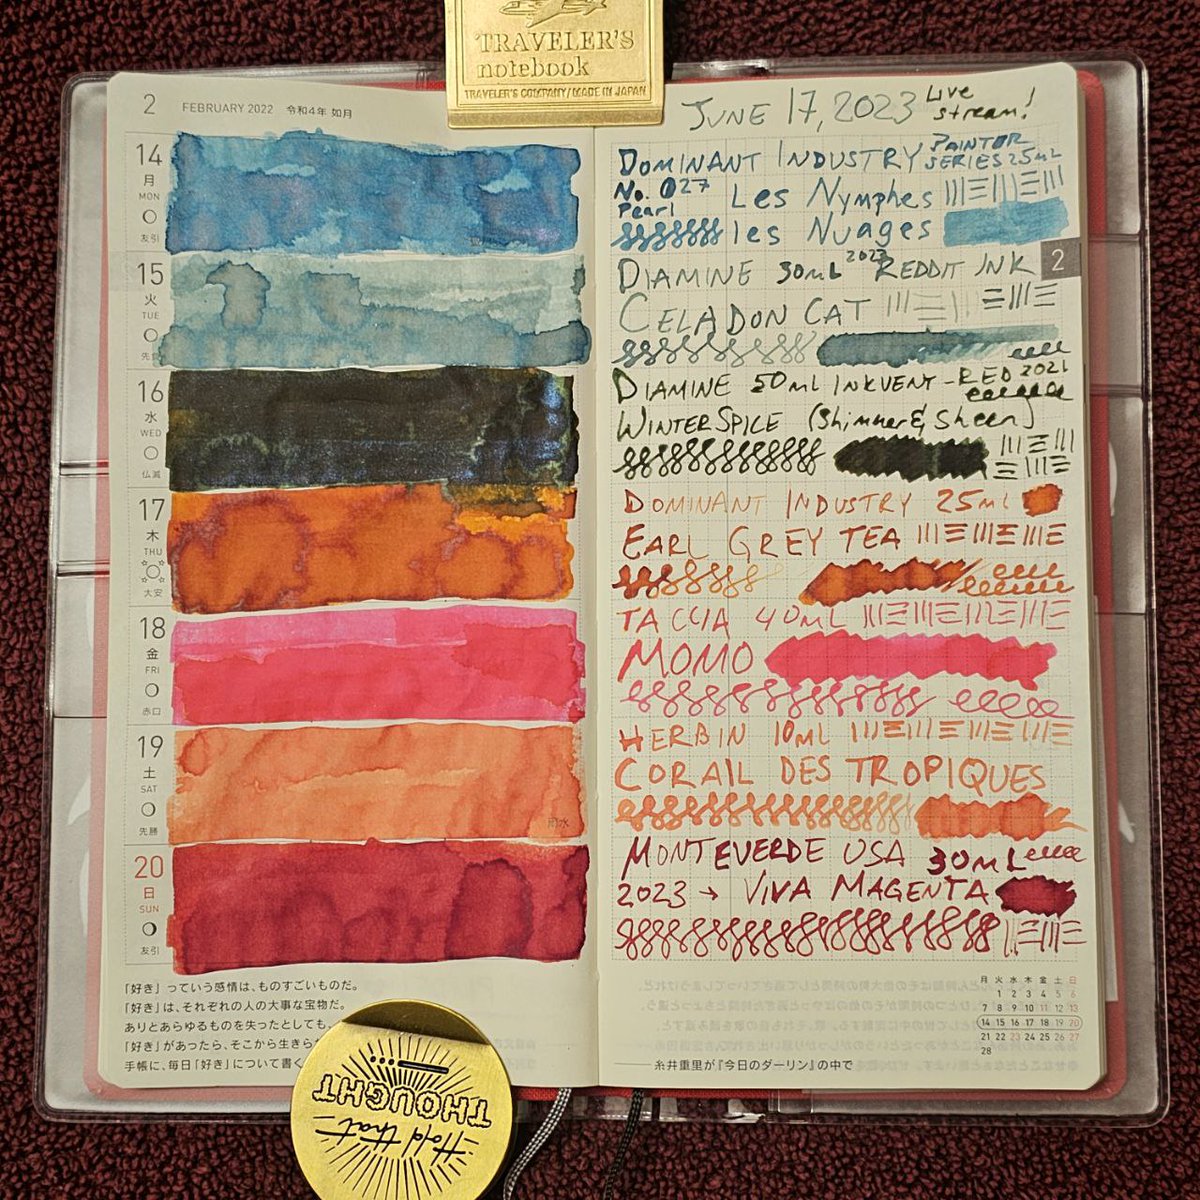 TRAVELER'S
notebook
TRAVELER'S COMPANY/MADE IN JAPAN
2 FEBRUARY 2022 令和4年 如月
14
月
MON
友引
15
火
TUE
先負
16
水
WED
仏滅
17
木
THU
大安
18
金
FRI
赤口
19
土
SAT
先勝
雨水
20
日
SUN
友引
「好き」っていう感情は、ものすごいものだ。
「好き」は、それぞれの人の大事な宝物だ。
ありとあらゆるものを失ったとしても、
「好き」があったら、そこから生きら
手帳に、毎日「好き」について書く
Hold that
THOUGHT
JUNE 17, 2023 Live stream!
DOMINANT INDUSTRY PAINTER SERIES 25mL
No. 027 Pearl Les Nymphes
les Nuages
DIAMINE 30mL 2023 REDDIT INK
2
CELADON CAT
DIAMINE 50ml INKVENT-RED 2021
WINTER SPICE (Shimmer & Sheen)
DOMINANT INDUSTRY 25ml
EARL GREY TEA
TACCIA 40ML
MOMO
HERBIN 10ML
CORAIL DES TROPIQUES
MONTEVERDE USA 30ML
2023 → VIVA MAGENTA
月 火 水 木 金 土 日
1 2 3 4 5 6
7 8 9 10 11 12 13
14 15 16 17 18 19 20
21 22 23 24 25 26 27
28
——糸井重里が『今日のダーリン』の中で